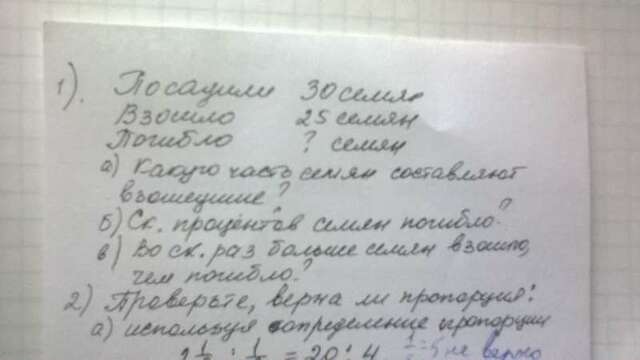 1). Посадили 30 семян
Взошло 25 семян
Погибло ? семян
а) Какую часть семян составляют
взошедшие?
б) Ск. процентов семян погибло?
в) Во ск. раз больше семян взошло,
чем погибло?
2) Проверьте, верна ли пропорция:
а) используя определение пропорции
= 20 : 4 не верно